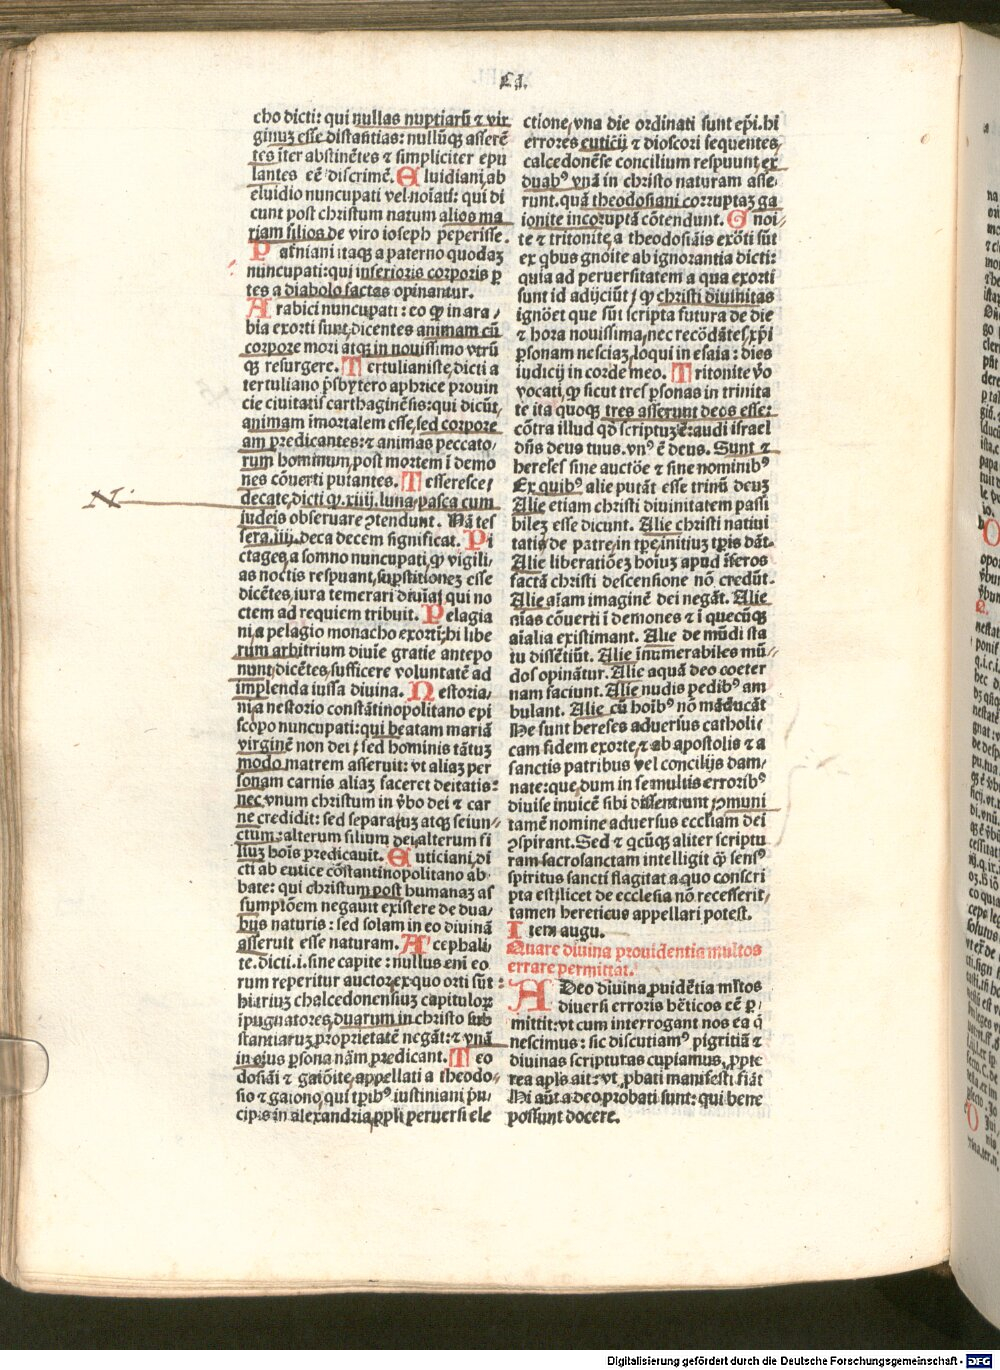 Ca.
cho dicti: qui nullas nuptiarū ⁊ vir
ginuʒ esse distantias: nullūqʒ asserē
tes īter abstinētes ⁊ simpliciter epu
lantes eē discrimē. Eluidiani, ab
eluidio nuncupati vel noīati: qui di
cunt post christum natum alios ma
riam filios de viro ioseph peperisse.
Paterniani itaqʒ a paterno quodaʒ
nuncupati: qui inferioris corporis ꝑ
tes a diabolo factas opinantur.
Arabici nuncupati: eo ꝙ in ara/
bia exorti sunt, dicentes animam cū
corpore mori atqʒ in nouissimo vtrū
qʒ resurgere. Tertulianiste, dicti a
tertuliano p̄sbytero aphrice prouin
cie ciuitatis carthaginēsis: qui dicūt,
animam imortalem esse, sed corpore
am predicantes: ⁊ animas peccato/
rum hominum, post mortem ī demo
nes cōuerti putantes. Tesseresce/
N decate, dicti ꝙ .xiiij. luna, pasca cum
iudeis obseruare ꝯtendunt. Nā tes
sera .iiij. deca decem significat. Pi
ctages, a somno nuncupati, ꝙ vigili/
as noctis respuant, suꝑstitioneʒ esse
dicētes, iura temerari diuīa, qui no
ctem ad requiem tribuit. Pelagia
ni, a pelagio monacho exorti; hi libe
rum arbitrium diuīe gratie antepo
nunt, dicētes, sufficere voluntatē ad
implenda iussa diuina. Nestoria/
ni, a nestorio constātinopolitano epi
scopo nuncupati: qui beatam mariā
virginē non dei, sed hominis tātuʒ
modo matrem asseruit: vt aliaʒ per
sonam carnis aliaʒ faceret deitatis:
nec vnum christum in v̄bo dei ⁊ car
ne credidit: sed separatuʒ atqʒ seiun/
ctum: alterum filium dei, alterum fi
liuʒ hoīs predicauit. Euticiani, di
cti ab eutice cōstantinopolitano ab
bate: qui christum post humanaʒ as
sumptōem negauit existere de dua/
bus naturis: sed solam in eo diuinā
asseruit esse naturam. Acephali/
te. dicti .i. sine capite: nullus enī eo
rum reperitur auctor ex quo orti sūt:
hi triuʒ chalcedonensiuʒ capituloꝝ
īpugnatores, duarum in christo sub
stantiaruʒ proprietatē negāt: ⁊ vnā
in eius ꝑsona nām predicant. Teo
dosiāi ⁊ gaiōite, appellati a theodo/
sio ⁊ gaiono, qui tꝑibꝰ iustiniani p̄n/
cipis in alexandria, ppl̄i peruersi ele
ctione, vna die ordinati sunt ep̄i. hi
errores euticij ⁊ dioscori sequentes,
calcedonēse concilium respuunt, ex
duabꝰ vnā in christo naturam asse/
runt. quā theodosiani corruptaʒ ga
ionite incoruptā cōtendunt. Gnoi/
te ⁊ tritonite, a theodosiāis exōti sūt
ex qbus gnoite ab ignorantia dicti:
quia ad peruersitatem a qua exorti
sunt id adijciūt, ꝙ christi diuinitas
ignōet que sūt scripta futura de die
⁊ hora nouissima, nec recōdātes, xp̄i
ꝑsonam nesciaʒ, loqui in esaia: dies
iudicij in corde meo. Tritonite v̄o
vocati, ꝙ sicut tres ꝑsonas in trinita
te ita quoqʒ tres asserunt deos esse:
cōtra illud qd̄ scriptuʒ ē: audi israel
dn̄s deus tuus. vnꝰ ē deus. Sunt ⁊
hereses sine auctōe ⁊ sine nominibꝰ
Ex quibꝰ alie putāt esse trinū deuʒ
Alie etiam christi diuinitatem passi
bileʒ esse dicunt. Alie christi natiui
tatis de patre, in tꝑe, initiuʒ tꝑis dāt.
Alie liberatiōeʒ hoīuʒ apud īferos
factā christi descensione nō credūt.
Alie aīam imaginē dei negāt. Alie
nīas cōuerti ī demones ⁊ ī quecūqʒ
aīalia existimant. Alie de mūdi sta
tu dissētiūt. Alie īnumerabiles mū/
dos opinātur. Alie aquā deo coeter
nam faciunt. Alie nudis pedibꝰ am
bulant. Alie cū hoībꝰ nō māducāt
He sunt hereses aduersus catholi/
cam fidem exorte, ⁊ ab apostolis ⁊ a
sanctis patribus vel concilijs dam/
nate: que, dum in se multis erroribꝰ
diuise inuicē sibi dissentiunt ꝯmuni
tamē nomine aduersus eccliam dei
ꝯspirant. Sed ⁊ qcūqʒ aliter scriptu
ram sacrosanctam intelligit ꝙ̄ sensꝰ
spiritus sancti flagitat a quo conscri
pta est, licet de ecclesia nō recesserit,
tamen hereticus appellari potest.
Item augu.
Quare diuina prouidentia multos
errare permittat.
ADeo diuina ꝓuidētia ml̄tos
diuersi erroris hēticos eē ꝑ/
mittit: vt cum interrogant nos ea q̄
nescimus: sic discutiamꝰ pigritiā ⁊
diuinas scripturas cupiamus, ꝓpte
rea apl̄s ait: vt ꝓbati manifesti fiāt
Hi aūt a deo probati sunt: qui bene
possunt docere.
Digitalisierung gefördert durch die Deutsche Forschungsgemeinschaft - DFG